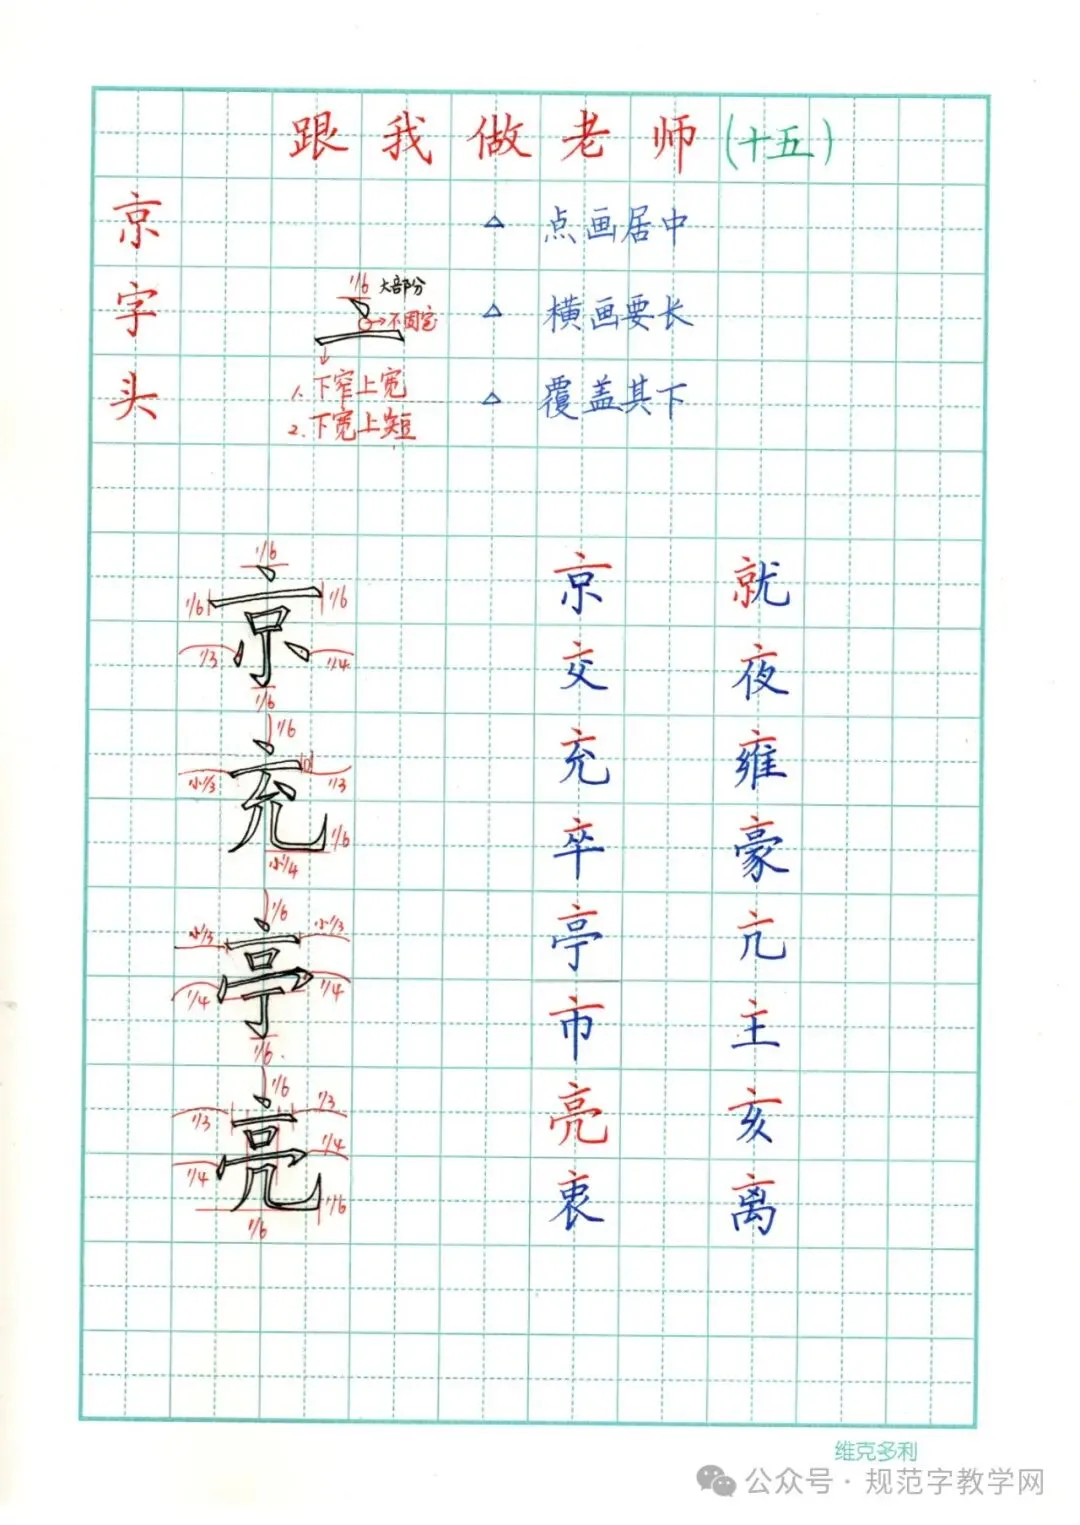 跟我做老师(十五)
京字头
1/6 大部分
→不固定
1.下窄上宽
2.下宽上短
△ 点画居中
△ 横画要长
△ 覆盖其下
1/6
1/6 京 1/6
1/3 1/4
1/6
1/6
小1/3 充 1/3
1/6
小1/4
1/6
小1/3 亭 小1/3
1/4 1/4
1/6.
1/6
1/3 亮 1/3
1/4 1/4
1/6
1/6
京 就
交 夜
充 雍
卒 豪
亭 亢
市 主
亮 亥
衷 离
维克多利
公众号·规范字教学网